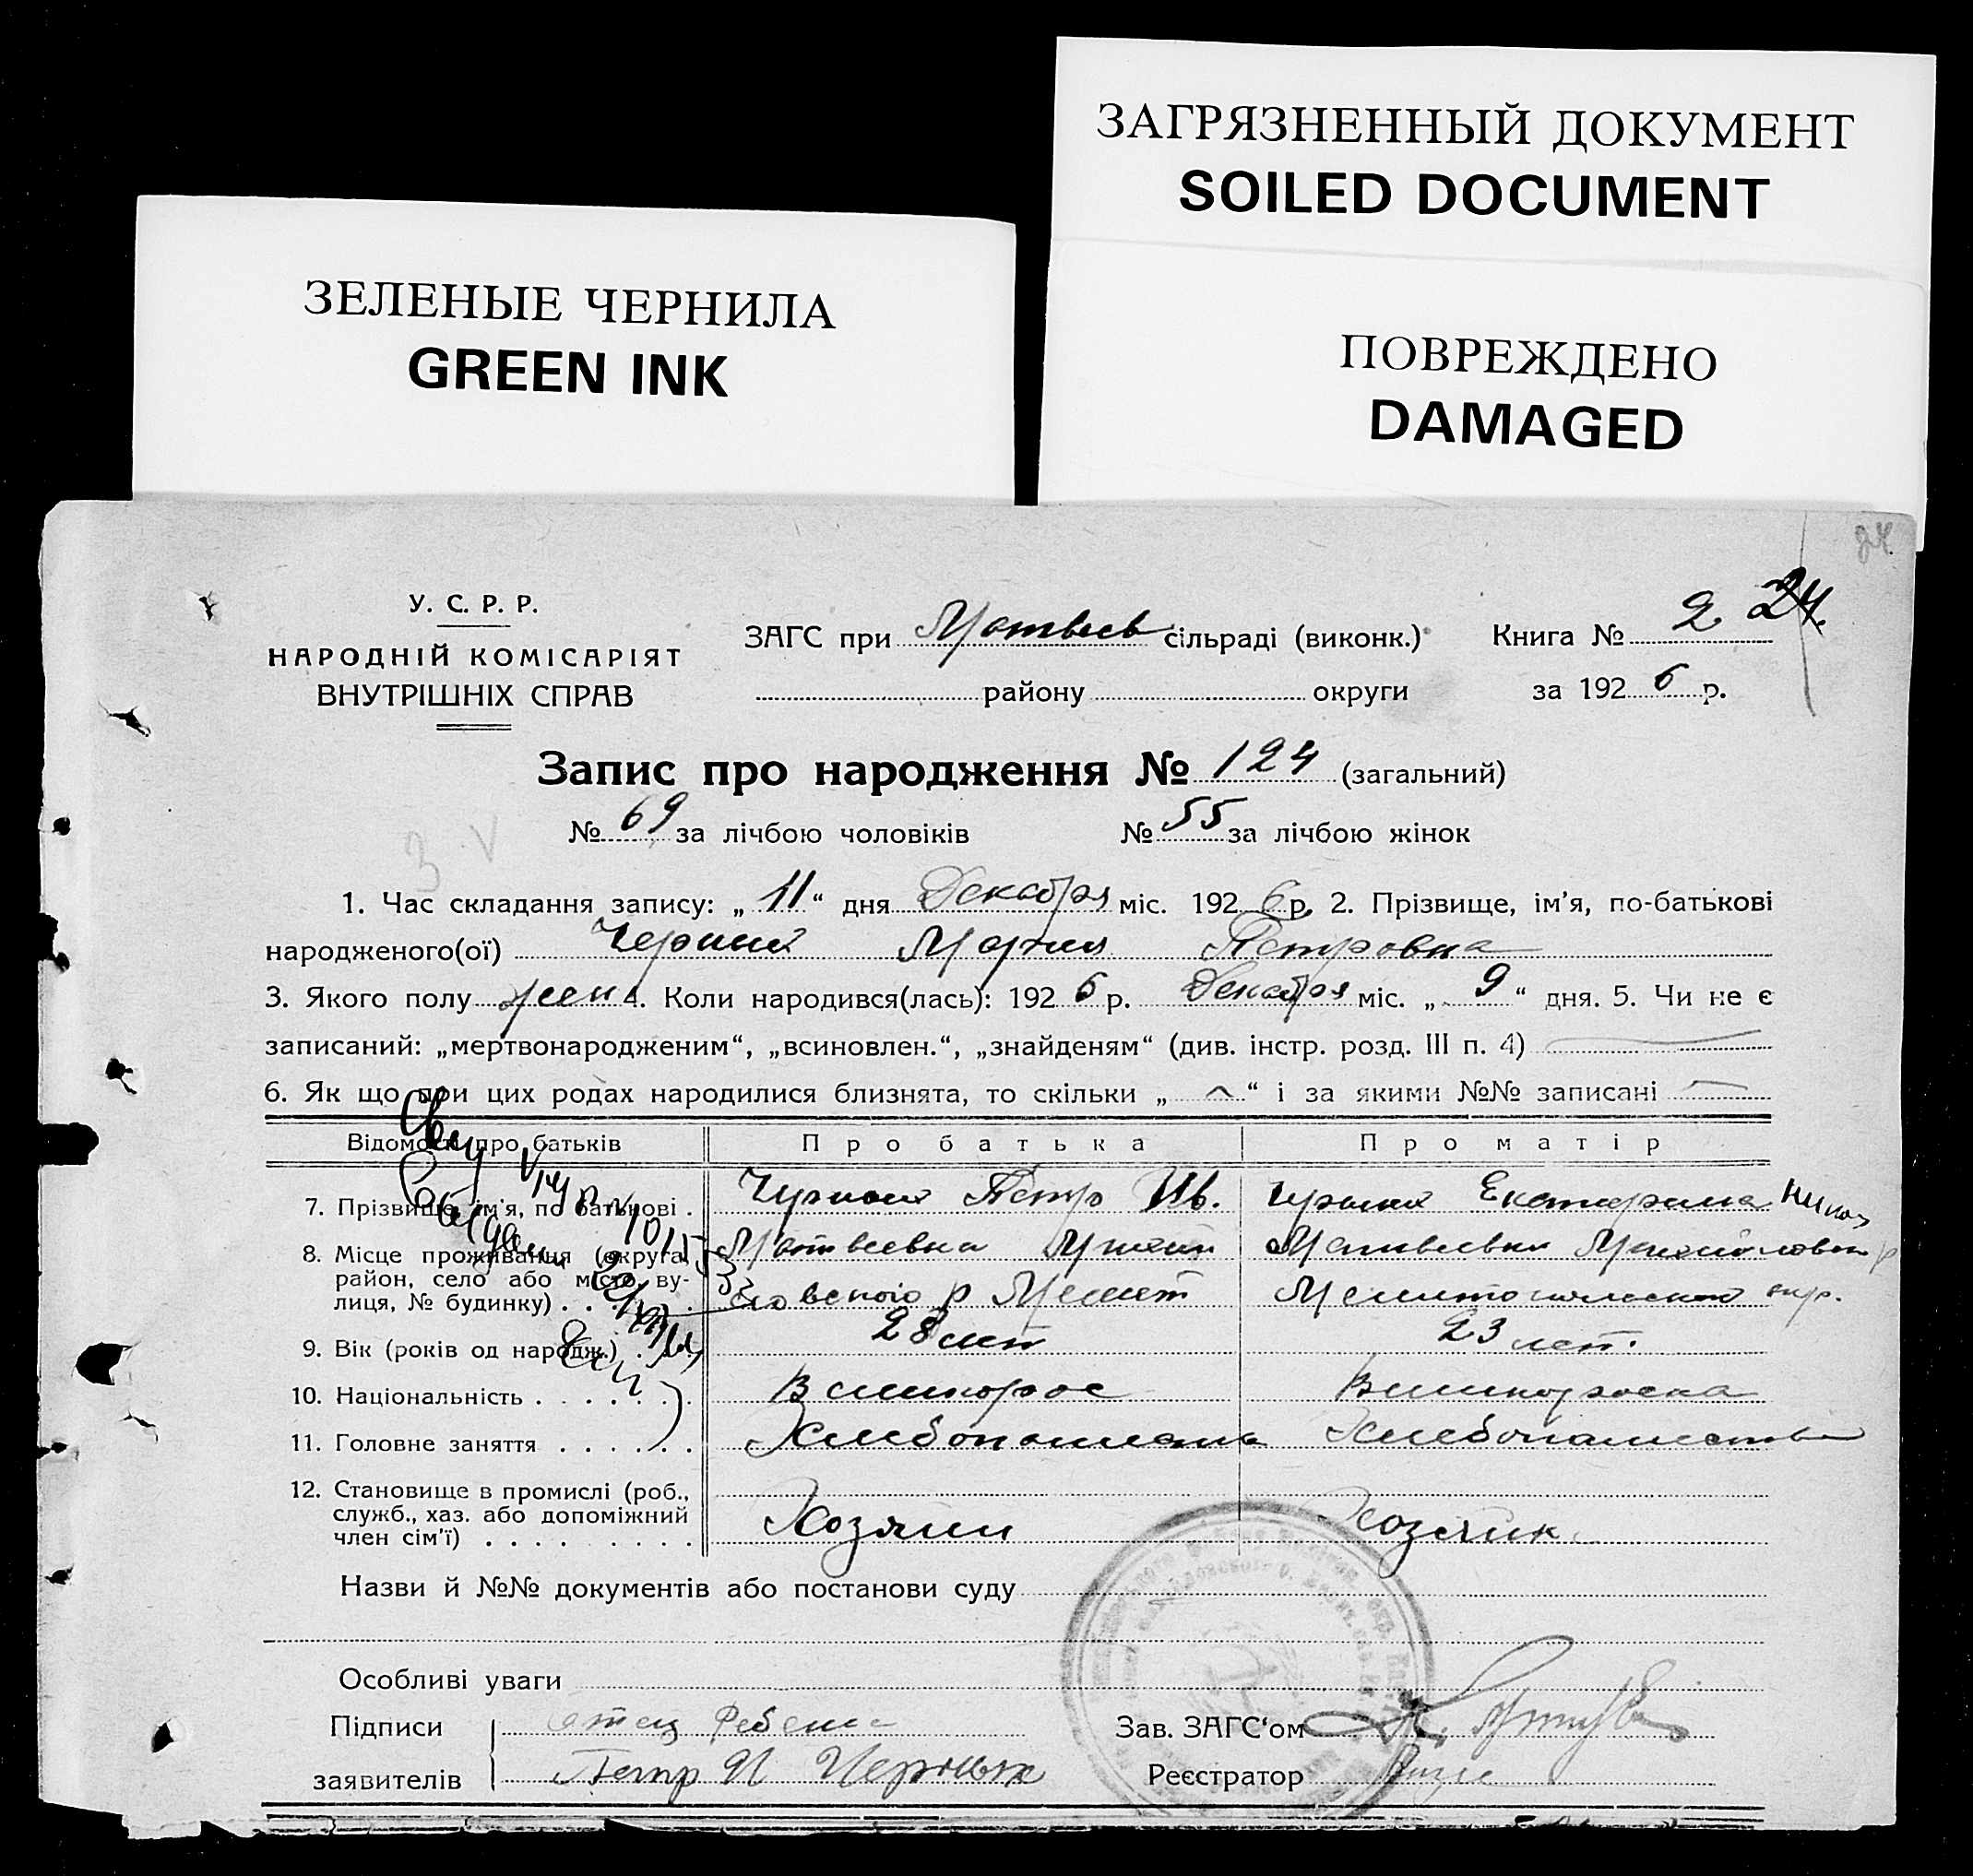 ЗАГРЯЗНЕННЫЙ ДОКУМЕНТ
SOILED DOCUMENT
ЗЕЛЕНЫЕ ЧЕРНИЛА
GREEN INK
ПОВРЕЖДЕНО
DAMAGED
24
У. С. Р. Р.
НАРОДНІЙ КОМІСАРІЯТ
ВНУТРІШНІХ СПРАВ
ЗАГС при Матвеев сільраді (виконк.) Книга № 2 24.
району округи за 1926 р.
Запис про народження № 124 (загальний)
№ 69 за лічбою чоловіків № 55 за лічбою жінок
1. Час складання запису: „11“ дня Декабря міс. 1926 р. 2. Прізвище, ім'я, по-батькові
народженого(ої) Мария Петровна
3. Якого полу жен 4. Коли народився(лась): 1926 р. Декабря міс. „9“ дня. 5. Чи не є
записаний: „мертвонародженим“, „всиновлен.“, „знайденям“ (див. інстр. розд. III п. 4) —
6. Як що при цих родах народилися близнята, то скільки „—“ і за якими №№ записані —
Відомості про батьків Про батька Про матір
7. Прізвище, ім'я, по батькові . Петр Ив. Екатерина
8. Місце проживання (округа, Матвеевка Матвеевка
район, село або місто, ву-
лиця, № будинку) . . . . р Мелит Мелитопольского окр.
9. Вік (років од народж.) . . . 28 лет 23 лет.
10. Національність . . . . . . . Великорос Великороска
11. Головне заняття . . . . . . Хлебопашество Хлебопашество
12. Становище в промислі (роб.,
служб., хаз. або допоміжний
член сім'ї) . . . . . . . . . Хозяин Хозяйк
Назви й №№ документів або постанови суду
Особливі уваги
Підписи Отец Ребенка Зав. ЗАГС‘ом
заявителів Петр И Черных Реєстратор